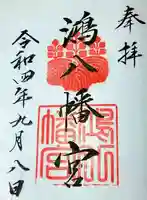 奉拝
鴻八幡宮
令和四年九月八日